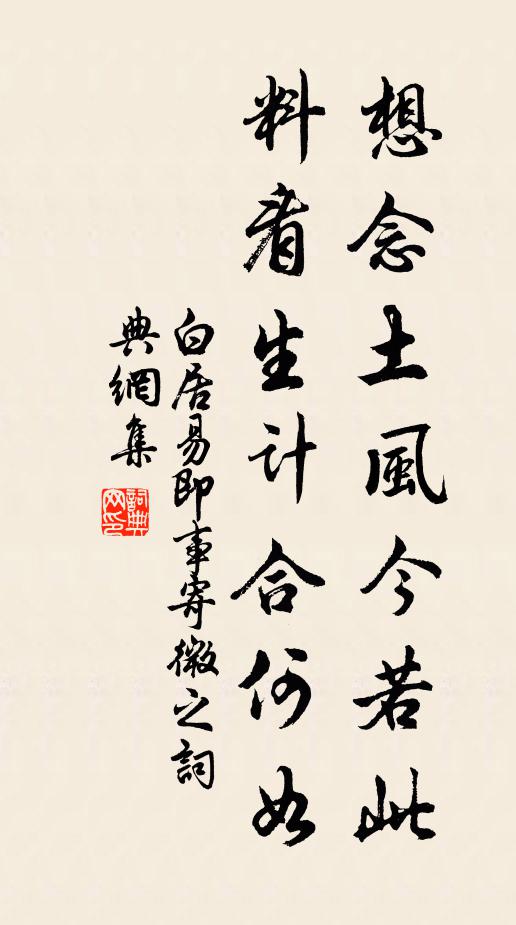 想念土風今若此
料看生計合何如
白居易即事寄微之詞
典網集
詞典網印